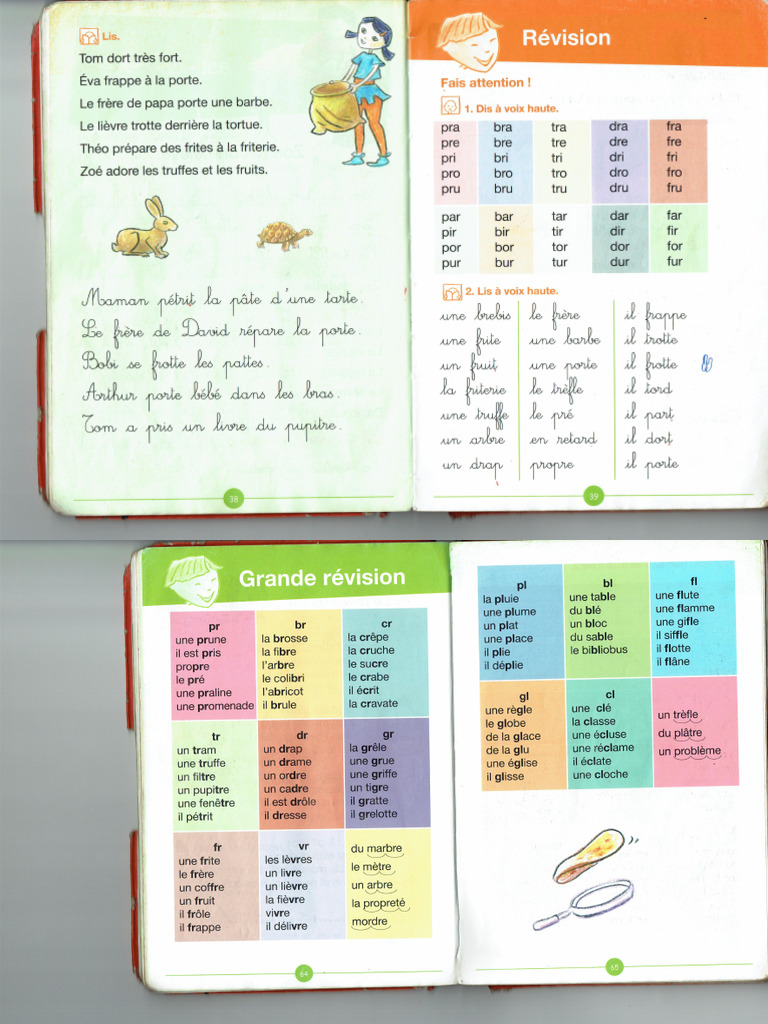 Lis.
Tom dort très fort.
Éva frappe à la porte.
Le frère de papa porte une barbe.
Le lièvre trotte derrière la tortue.
Théo prépare des frites à la friterie.
Zoé adore les truffes et les fruits.
Maman pétrit la pâte d'une tarte.
Le frère de David répare la porte.
Bobi se frotte les pattes.
Arthur porte bébé dans les bras.
Tom a pris un livre du pupitre.
38
Révision
Fais attention !
1. Dis à voix haute.
pra bra tra dra fra
pre bre tre dre fre
pri bri tri dri fri
pro bro tro dro fro
pru bru tru dru fru
par bar tar dar far
pir bir tir dir fir
por bor tor dor for
pur bur tur dur fur
2. Lis à voix haute.
une brebis le frère il frappe
une frite une barbe il trotte
un fruit une porte il frotte
la friterie le trèfle il tord
une truffe le pré il part
un arbre en retard il dort
un drap propre il porte
39
Grande révision
pr
une prune
il est pris
propre
le pré
une praline
une promenade
br
la brosse
la fibre
l'arbre
le colibri
l'abricot
il brule
cr
la crêpe
la cruche
le sucre
le crabe
il écrit
la cravate
tr
un tram
une truffe
un filtre
un pupitre
une fenêtre
il pétrit
dr
un drap
un drame
un ordre
un cadre
il est drôle
il dresse
gr
la grêle
une grue
une griffe
un tigre
il gratte
il grelotte
fr
une frite
le frère
un coffre
un fruit
il frôle
il frappe
vr
les lèvres
un livre
un lièvre
la fièvre
vivre
il délivre
du marbre
le mètre
un arbre
la propreté
mordre
64
pl
la pluie
une plume
un plat
une place
il plie
il déplie
bl
une table
du blé
un bloc
du sable
le bibliobus
fl
une flute
une flamme
une gifle
il siffle
il flotte
il flâne
gl
une règle
le globe
de la glace
de la glu
une église
il glisse
cl
une clé
la classe
une écluse
une réclame
il éclate
une cloche
un trèfle
du plâtre
un problème
65